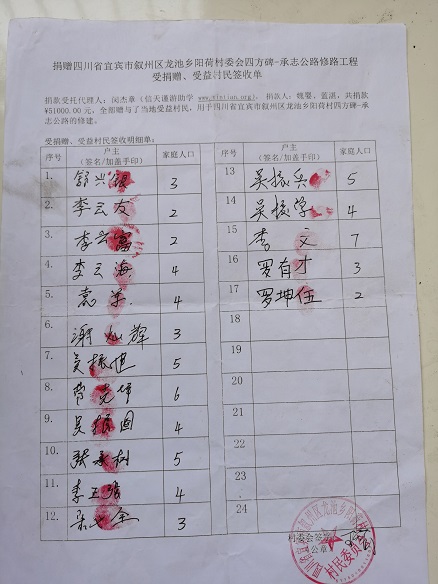 捐赠四川省宜宾市叙州区龙池乡阳荷村委会四方碑-承志公路修路工程
受捐赠、受益村民签收单
捐款受托代理人：闵杰章（信天谨游助学 www.xintian.org），捐款人：魏婴、蓝湛，共捐款
¥51000.00 元，全部赠与了当地受益村民，用于四川省宜宾市叙州区龙池乡阳荷村四方碑-承
志公路的修建。
受捐赠、受益村民签收明细单：
序号 户主（签名/加盖手印） 家庭人口
1. 舒兴银 3
2. 李云友 2
3. 李兴富 2
4. 李云海 4
5. 袁 4
6. 谢灿辉 3
7. 吴振 5
8. 6
9. 吴振国 4
10. 树 5
11. 李 4
12. 全 3
序号 户主（签名/加盖手印） 家庭人口
13 吴振兵 5
14 吴振学 4
15 李文 7
16 罗有才 3
17 罗坤伍 2
18
19
20
21
22
23
24
村委会签
公章
龙池乡
村民委员会